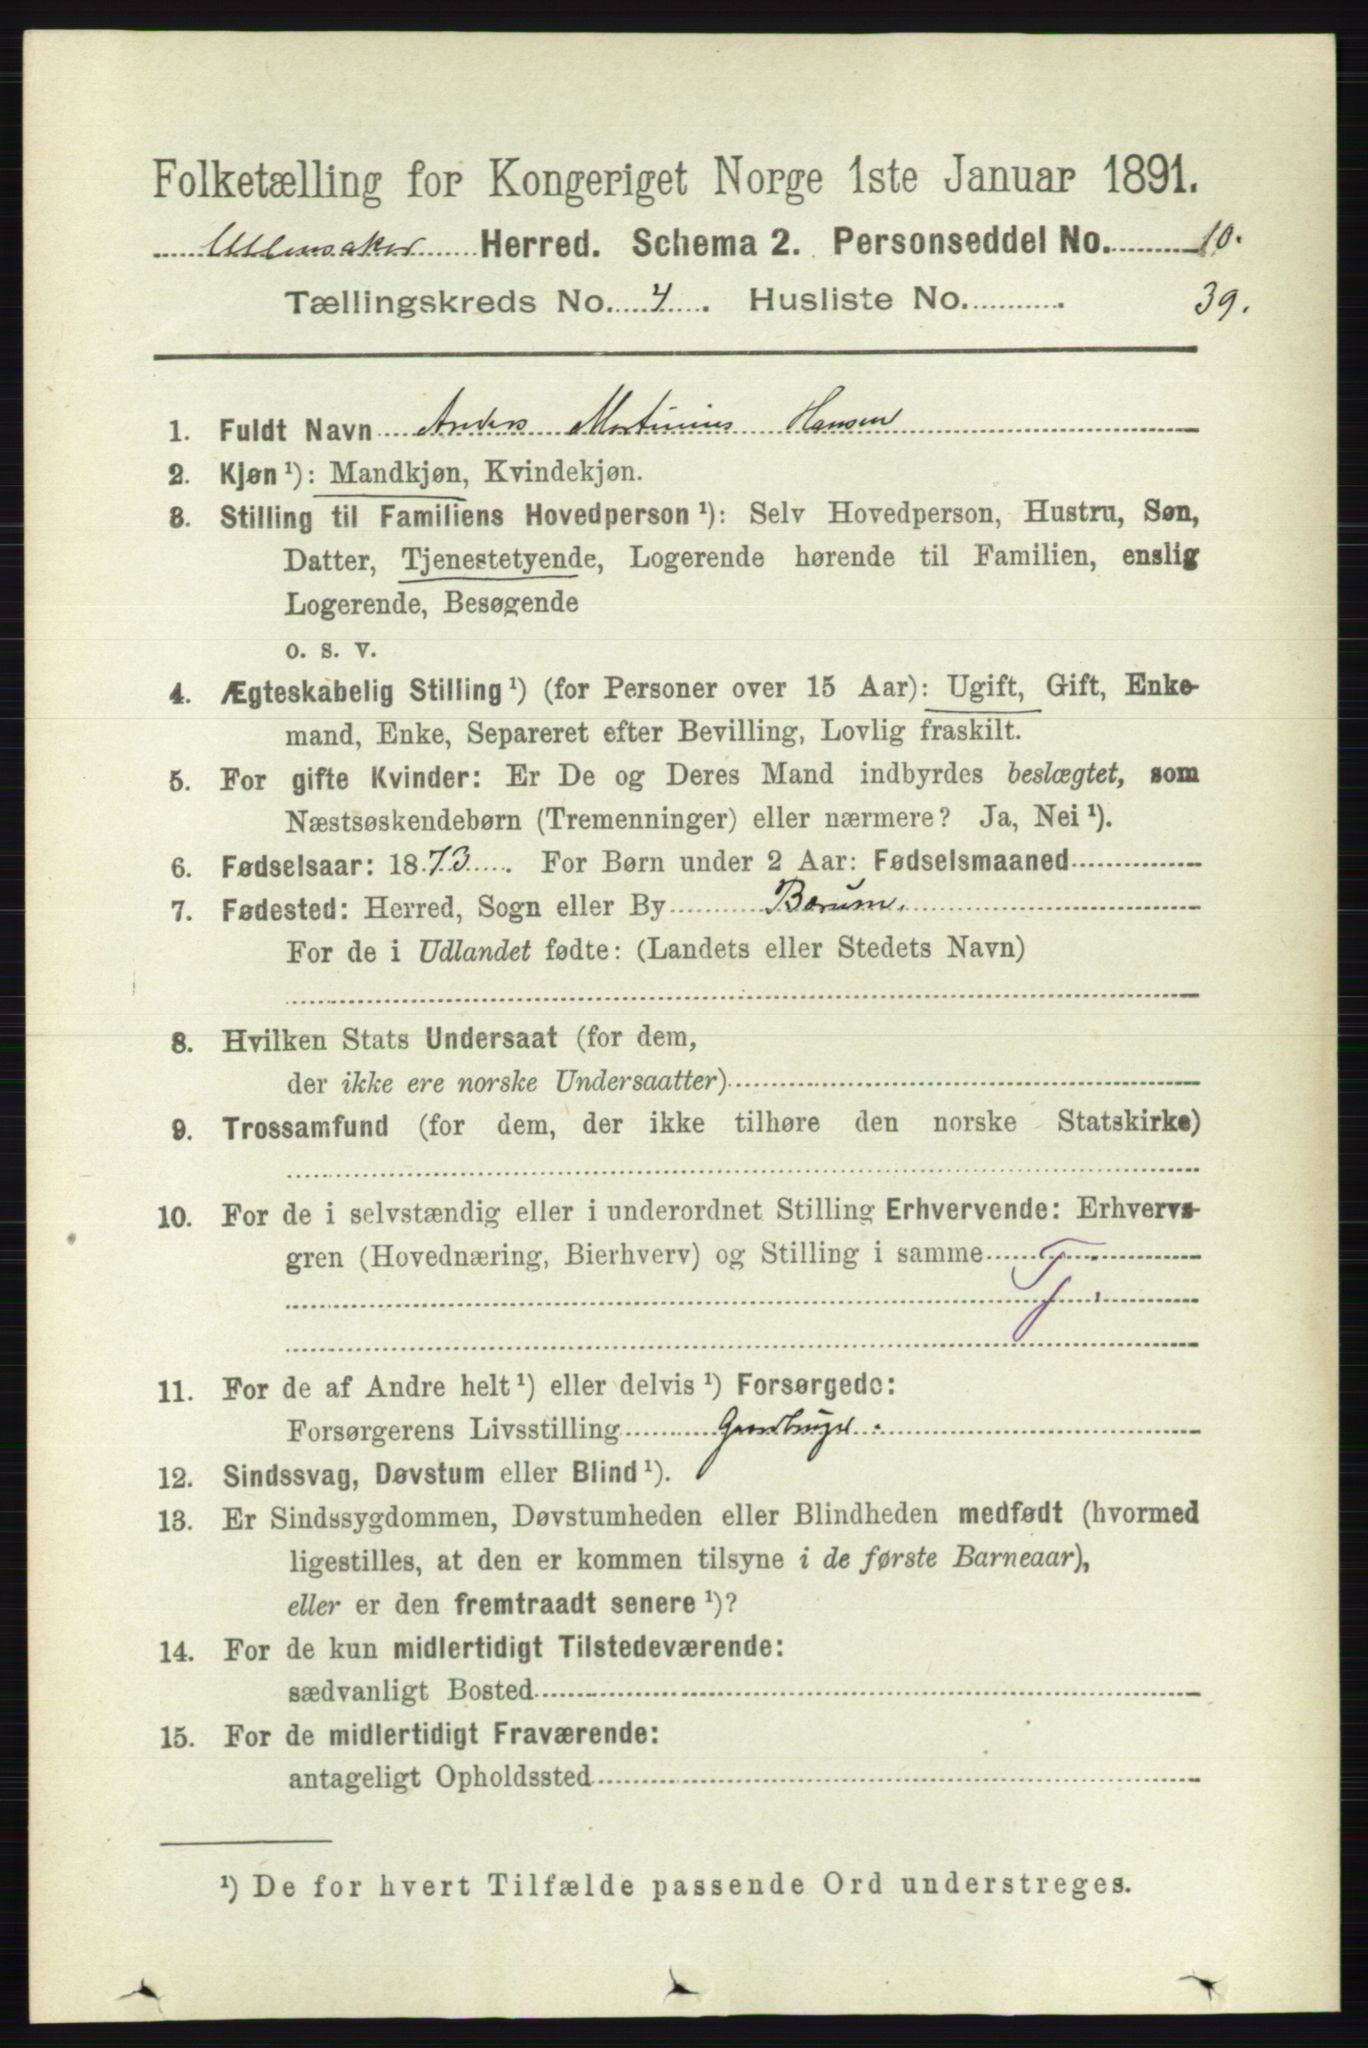 Folketælling for Kongeriget Norge 1ste Januar 1891.
Ullensaker Herred. Schema 2. Personseddel No. 10.
Tællingskreds No. 4. Husliste No. 39.
1. Fuldt Navn Anders Martinius Hansen
2. Kjøn¹): Mandkjøn, Kvindekjøn.
3. Stilling til Familiens Hovedperson¹): Selv Hovedperson, Hustru, Søn,
Datter, Tjenestetyende, Logerende hørende til Familien, enslig
Logerende, Besøgende
o. s. v.
4. Ægteskabelig Stilling¹) (for Personer over 15 Aar): Ugift, Gift, Enke-
mand, Enke, Separeret efter Bevilling, Lovlig fraskilt.
5. For gifte Kvinder: Er De og Deres Mand indbyrdes beslægtet, som
Næstsøskendebørn (Tremenninger) eller nærmere? Ja, Nei¹).
6. Fødselsaar: 1873. For Børn under 2 Aar: Fødselsmaaned
7. Fødested: Herred, Sogn eller By Bærum.
For de i Udlandet fødte: (Landets eller Stedets Navn)
8. Hvilken Stats Undersaat (for dem,
der ikke ere norske Undersaatter)
9. Trossamfund (for dem, der ikke tilhøre den norske Statskirke)
10. For de i selvstændig eller i underordnet Stilling Erhvervende: Erhvervs-
gren (Hovednæring, Bierhverv) og Stilling i samme T.
f.
11. For de af Andre helt¹) eller delvis¹) Forsørgede:
Forsørgerens Livsstilling
12. Sindssvag, Døvstum eller Blind¹).
13. Er Sindssygdommen, Døvstumheden eller Blindheden medfødt (hvormed
ligestilles, at den er kommen tilsyne i de første Barneaar),
eller er den fremtraadt senere¹)?
14. For de kun midlertidigt Tilstedeværende:
sædvanligt Bosted
15. For de midlertidigt Fraværende:
antageligt Opholdssted
¹) De for hvert Tilfælde passende Ord understreges.